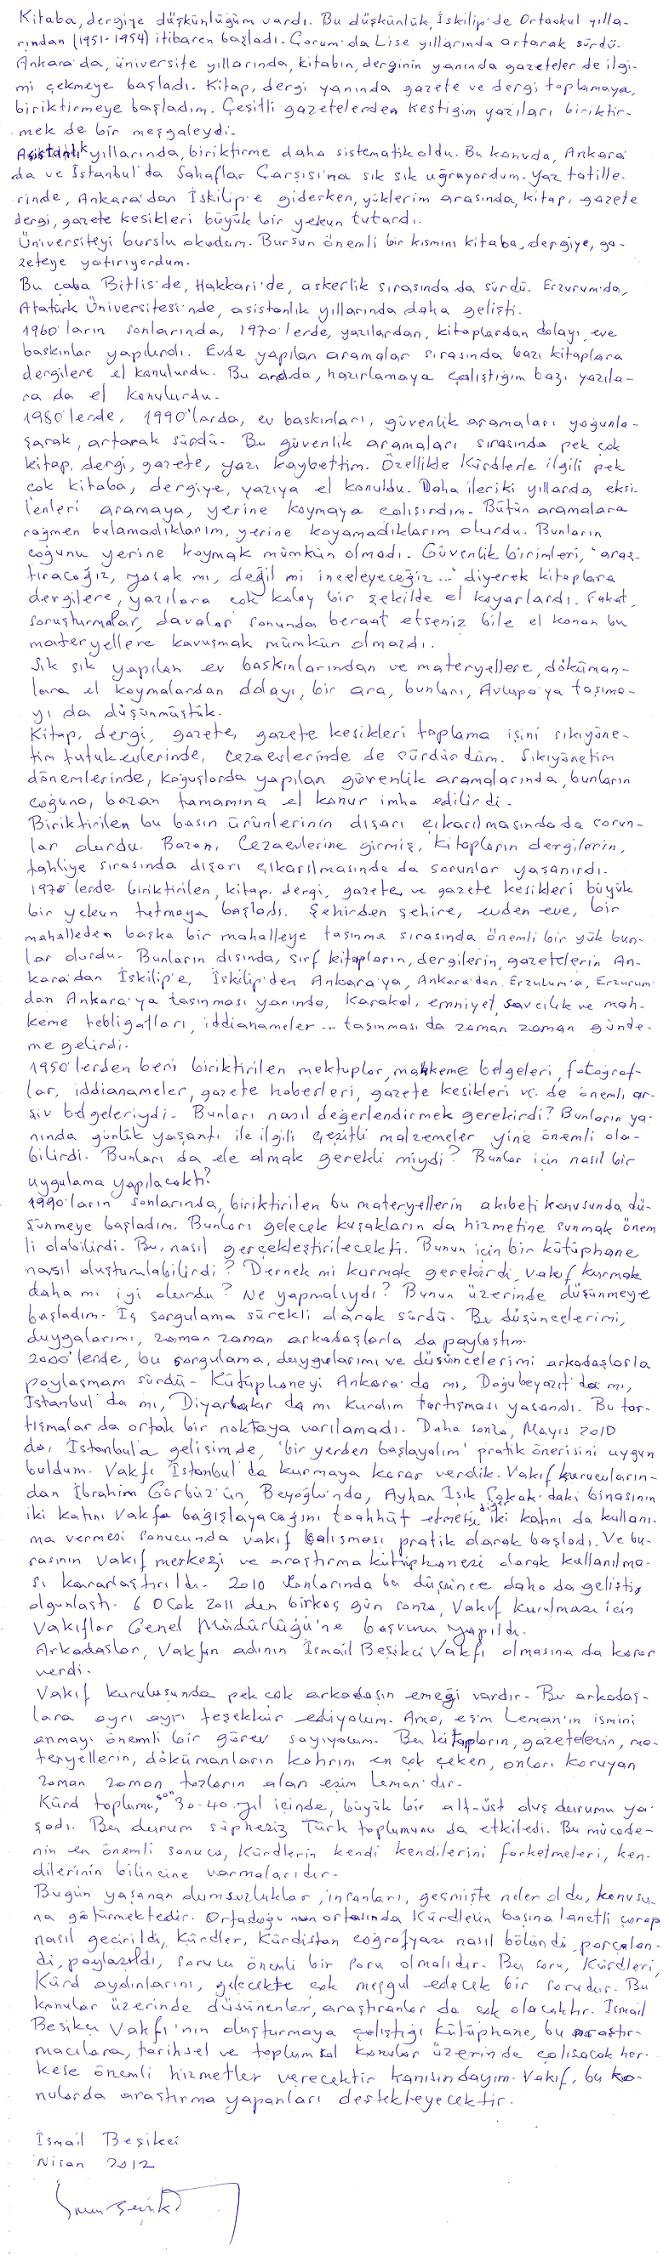 Kitaba, dergiye düşkünlüğüm vardı. Bu düşkünlük, İskilip'de Ortaokul yılla-
rından (1951-1954) itibaren başladı. Çorum'da Lise yıllarında artarak sürdü.
Ankara'da, üniversite yıllarında, kitabın, derginin yanında gazeteler de ilgi-
mi çekmeye başladı. Kitap, dergi yanında gazete ve dergi toplamaya,
biriktirmeye başladım. Çeşitli gazetelerden kestiğim yazıları biriktir-
mek de bir meşgaleydi.
Asistanlık yıllarında, biriktirme daha sistematik oldu. Bu konuda, Ankara'
da ve İstanbul'da Sahaflar Çarşısı'na sık sık uğruyordum. Yaz tatille-
rinde, Ankara'dan İskilip'e giderken, yüklerim arasında, kitap, gazete
dergi, gazete kesikleri büyük bir yekun tutardı.
Üniversiteyi burslu okudum. Bursun önemli bir kısmını kitaba, dergiye, ga-
zeteye yatırıyordum.
Bu çaba Bitlis'de, Hakkari'de, askerlik sırasında da sürdü. Erzurum'da,
Atatürk Üniversitesi'nde, asistanlık yıllarında daha gelişti.
1960'ların sonlarında, 1970'lerde, yazılardan, kitaplardan dolayı, eve
baskınlar yapılırdı. Evde yapılan aramalar sırasında bazı kitaplara
dergilere el konulurdu. Bu arada, hazırlamaya çalıştığım bazı yazıla-
ra da el konulurdu.
1980'lerde, 1990'larda, ev baskınları, güvenlik aramaları yoğunla-
şarak, artarak sürdü. Bu güvenlik aramaları sırasında pek çok
kitap, dergi, gazete, yazı kaybettim. Özellikle Kürdlerle ilgili pek
çok kitaba, dergiye, yazıya el konuldu. Daha ileriki yıllarda, eksi-
lenleri aramaya, yerine koymaya çalışırdım. Bütün aramalara
rağmen bulamadıklarım, yerine koyamadıklarım olurdu. Bunların
çoğunu yerine koymak mümkün olmadı. Güvenlik birimleri, 'araş-
tıracağız, yasak mı, değil mi inceleyeceğiz...' diyerek kitaplara
dergilere, yazılara çok kolay bir şekilde el koyarlardı. Fakat,
soruşturmalar, davalar sonunda beraat etseniz bile el konan bu
materyellere kavuşmak mümkün olmazdı.
Sık sık yapılan ev baskınlarından ve materyellere, döküman-
lara el koymalardan dolayı, bir ara, bunları, Avrupa'ya taşıma-
yı da düşünmüştük.
Kitap, dergi, gazete, gazete kesikleri toplama işini sıkıyöne-
tim tutukevlerinde, cezaevlerinde de sürdürdüm. Sıkıyönetim
dönemlerinde, koğuşlarda yapılan güvenlik aramalarında, bunların
çoğuna, bazan tamamına el konur imha edilirdi.
Biriktirilen bu basın ürünlerinin dışarı çıkarılmasında da sorun-
lar olurdu. Bazan, Cezaevlerine girmiş, kitapların dergilerin,
tahliye sırasında dışarı çıkarılmasında da sorunlar yaşanırdı.
1970'lerde biriktirilen, kitap, dergi, gazete, ve gazete kesikleri büyük
bir yekun tutmaya başladı. Şehirden şehire, evden eve, bir
mahalleden başka bir mahalleye taşınma sırasında önemli bir yük bun-
lar olurdu. Bunların dışında, sırf kitapların, dergilerin, gazetelerin An-
kara'dan İskilip'e, İskilip'den Ankara'ya, Ankara'dan Erzurum'a, Erzurum'
dan Ankara'ya taşınması yanında, karakol, emniyet, savcılık ve mah-
keme tebligatları, iddianameler... taşınması da zaman zaman günde-
me gelirdi.
1950'lerden beri biriktirilen mektuplar, mahkeme belgeleri, fotoğraf-
lar, iddianameler, gazete haberleri, gazete kesikleri vs. de önemli ar-
şiv belgeleriydi. Bunları nasıl değerlendirmek gerekirdi? Bunların ya-
nında günlük yaşantı ile ilgili çeşitli malzemeler yine önemli ola-
bilirdi. Bunları da ele almak gerekli miydi? Bunlar için nasıl bir
uygulama yapılacaktı?
1990'ların sonlarında, biriktirilen bu materyellerin akıbeti konusunda dü-
şünmeye başladım. Bunları gelecek kuşakların da hizmetine sunmak önem
li olabilirdi. Bu, nasıl gerçekleştirilecekti. Bunun için bir kütüphane
nasıl oluşturulabilirdi? Dernek mi kurmak gerekirdi, vakıf kurmak
daha mı iyi olurdu? Ne yapmalıydı? Bunun üzerinde düşünmeye
başladım. İç sorgulama sürekli olarak sürdü. Bu düşüncelerimi,
duygularımı, zaman zaman arkadaşlarla da paylaştım.
2000'lerde, bu sorgulama, duygularımı ve düşüncelerimi arkadaşlarla
paylaşmam sürdü. Kütüphaneyi Ankara'da mı, Doğubeyazıt'da mı,
İstanbul'da mı, Diyarbakır'da mı kuralım tartışması yaşandı. Bu tar-
tışmalar da ortak bir noktaya varılamadı. Daha sonra, Mayıs 2010
da, İstanbul'a gelişimde, 'bir yerden başlayalım' pratik önerisini uygun
buldum. Vakfı İstanbul'da kurmaya karar verdik. Vakıf kurucuların-
dan İbrahim Gürbüz'ün, Beyoğlu'nda, Ayhan Işık Sokak'daki binasının
iki katını Vakfa bağışlayacağını taahhüt etmesi, diğer iki katını da kullanı-
ma vermesi sonucunda vakıf çalışması pratik olarak başladı. Ve bu-
rasının Vakıf merkezi ve araştırma kütüphanesi olarak kullanılma-
sı kararlaştırıldı. 2010 sonlarında bu düşünce daha da gelişti,
olgunlaştı. 6 Ocak 2011 den birkaç gün sonra, Vakıf kurulması için
Vakıflar Genel Müdürlüğü'ne başvuru yapıldı.
Arkadaşlar, Vakfın adının İsmail Beşikci Vakfı olmasına da karar
verdi.
Vakıf kuruluşunda pek çok arkadaşın emeği vardır. Bu arkadaş-
lara ayrı ayrı teşekkür ediyorum. Ama, eşim Leman'ın ismini
anmayı önemli bir görev sayıyorum. Bu kitapların, gazetelerin, ma-
teryellerin, dökümanların kahrını en çok çeken, onları koruyan
zaman zaman tozların alan eşim Leman'dır.
Kürd toplumu, son 30-40 yıl içinde, büyük bir alt-üst oluş durumu ya-
şadı. Bu durum şüphesiz Türk toplumunu da etkiledi. Bu mücade-
nin en önemli sonucu, Kürdlerin kendi kendilerini farketmeleri, ken-
dilerinin bilincine varmalarıdır.
Bugün yaşanan olumsuzluklar, insanları, geçmişte neler oldu, konusu-
na götürmektedir. Ortadoğu'nun ortasında Kürdlerin başına lanetli çorap
nasıl geçirildi, Kürdler, Kürdistan coğrafyası nasıl bölündü, parçalan-
dı, paylaşıldı, sorusu önemli bir soru olmalıdır. Bu soru, Kürdleri,
Kürd aydınlarını, gelecekte çok meşgul edecek bir sorudur. Bu
konular üzerinde düşünenler, araştıranlar da çok olacaktır. İsmail
Beşikci Vakfı'nın oluşturmaya çalıştığı kütüphane, bu araştır-
macılara, tarihsel ve toplumsal konular üzerinde çalışacak her-
kese önemli hizmetler verecektir kanısındayım. Vakıf, bu ko-
nularda araştırma yapanları destekleyecektir.
İsmail Beşikci
Nisan 2012